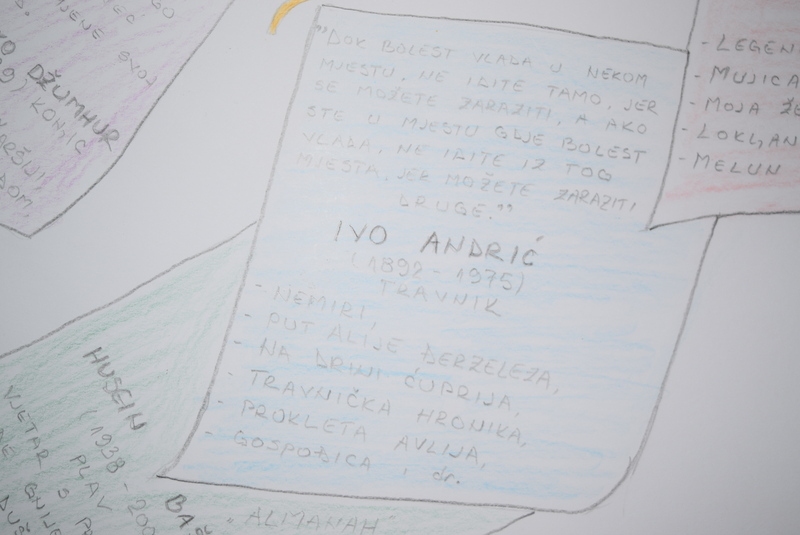 "DOK BOLEST VLADA U NEKOM
MJESTU, NE IDITE TAMO, JER
SE MOŽETE ZARAZITI, A AKO
STE U MJESTU GDJE BOLEST
VLADA, NE IDITE IZ TOG
MJESTA, JER MOŽETE ZARAZITI
DRUGE."
IVO ANDRIĆ
(1892 - 1975)
TRAVNIK
- NEMIRI,
- PUT ALIJE ĐERZELEZA,
- NA DRINI ĆUPRIJA,
- TRAVNIČKA HRONIKA,
- PROKLETA AVLIJA,
- GOSPOĐICA i dr.
DŽUMHUR
KONJIC
HUSEIN
(1938 - 200
VJETAR S
PLAV
BAŠ
"ALMANAH"
- LEGEN
- MUJICA
- MOJA ŽE
- LOKLAN
- MELUN